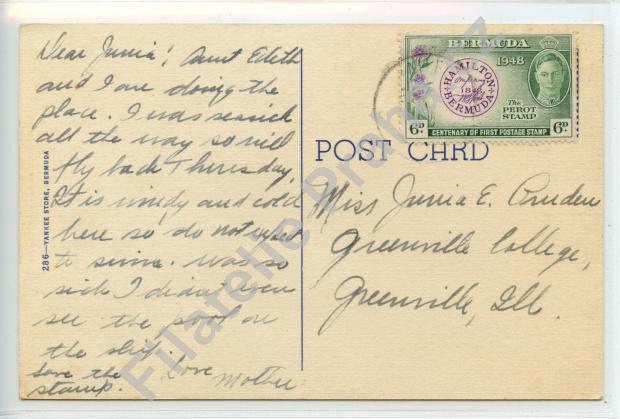 Dear Junia! Aunt Edith
and I are doing the
place. I was seasick
all the way so will
fly back Thursday.
It is windy and cold
here so do not expect
to swim. Was so
sick I didn't even
see the pool on
the ship.
Save the
stamp.
Love
Mother
286—YANKEE STORE, BERMUDA
BERMUDA
1948
HAMILTON
BERMUDA
1848
The
PEROT
STAMP
6D
CENTENARY OF FIRST POSTAGE STAMP
6D
POST CARD
Miss Junia E.
Greenville College,
Greenville, Ill.
Filatelie Praha